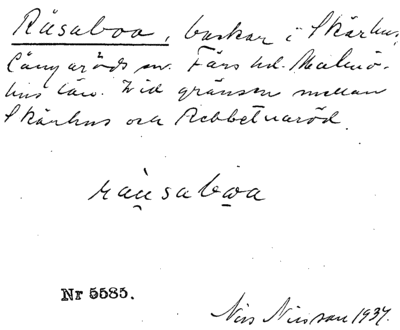 Räsaboa, backar i Skärhus,
Långaröds sn. Färs hd. Malmö-
hus län. Vid gränsen mellan
Skärhus och Rebbetuaröd.
räusabωa
Nr 5585.
Nils Nilsson 1937.